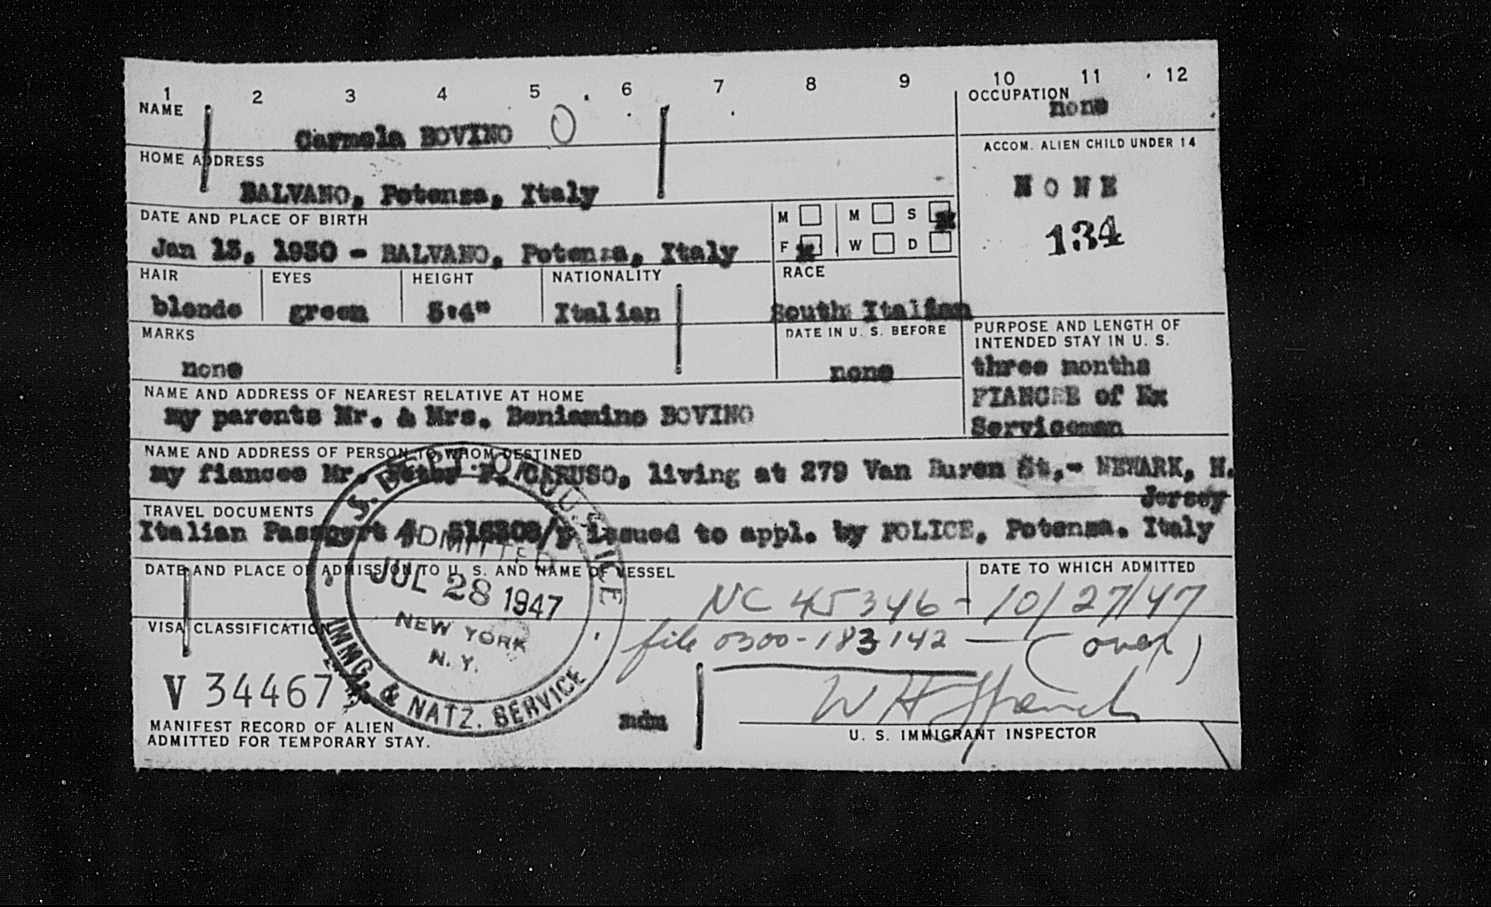 1 2 3 4 5 6 7 8 9 10 11 12
NAME
Carmela BOVINO
OCCUPATION
none
HOME ADDRESS
BALVANO, Potenza, Italy
ACCOM. ALIEN CHILD UNDER 14
NONE
134
DATE AND PLACE OF BIRTH
Jan 13, 1930 - BALVANO, Potenza, Italy
M M S x
F x W D
HAIR EYES HEIGHT NATIONALITY RACE
blonde green 5:4" Italian South Italian
MARKS
none
DATE IN U. S. BEFORE
none
PURPOSE AND LENGTH OF
INTENDED STAY IN U. S.
three months
FIANCEE of Ex
Serviceman
NAME AND ADDRESS OF NEAREST RELATIVE AT HOME
my parents Mr. & Mrs. Beniamino BOVINO
NAME AND ADDRESS OF PERSON TO WHOM DESTINED
my fiancee Mr. CARUSO, living at 279 Van Buren St,- NEWARK, N.
Jersey
TRAVEL DOCUMENTS
Italian Passport issued to appl. by POLICE, Potenza. Italy
DATE AND PLACE OF ADMISSION TO U. S. AND NAME OF VESSEL
DATE TO WHICH ADMITTED
NC 45346 - 10/27/47
U.S. DEPT. OF JUSTICE
ADMITTED
JUL 28 1947
NEW YORK
N. Y.
IMMG. & NATZ. SERVICE
VISA CLASSIFICATION
file 0300-183142 — (over)
V 34467
mdm
MANIFEST RECORD OF ALIEN
ADMITTED FOR TEMPORARY STAY.
U. S. IMMIGRANT INSPECTOR